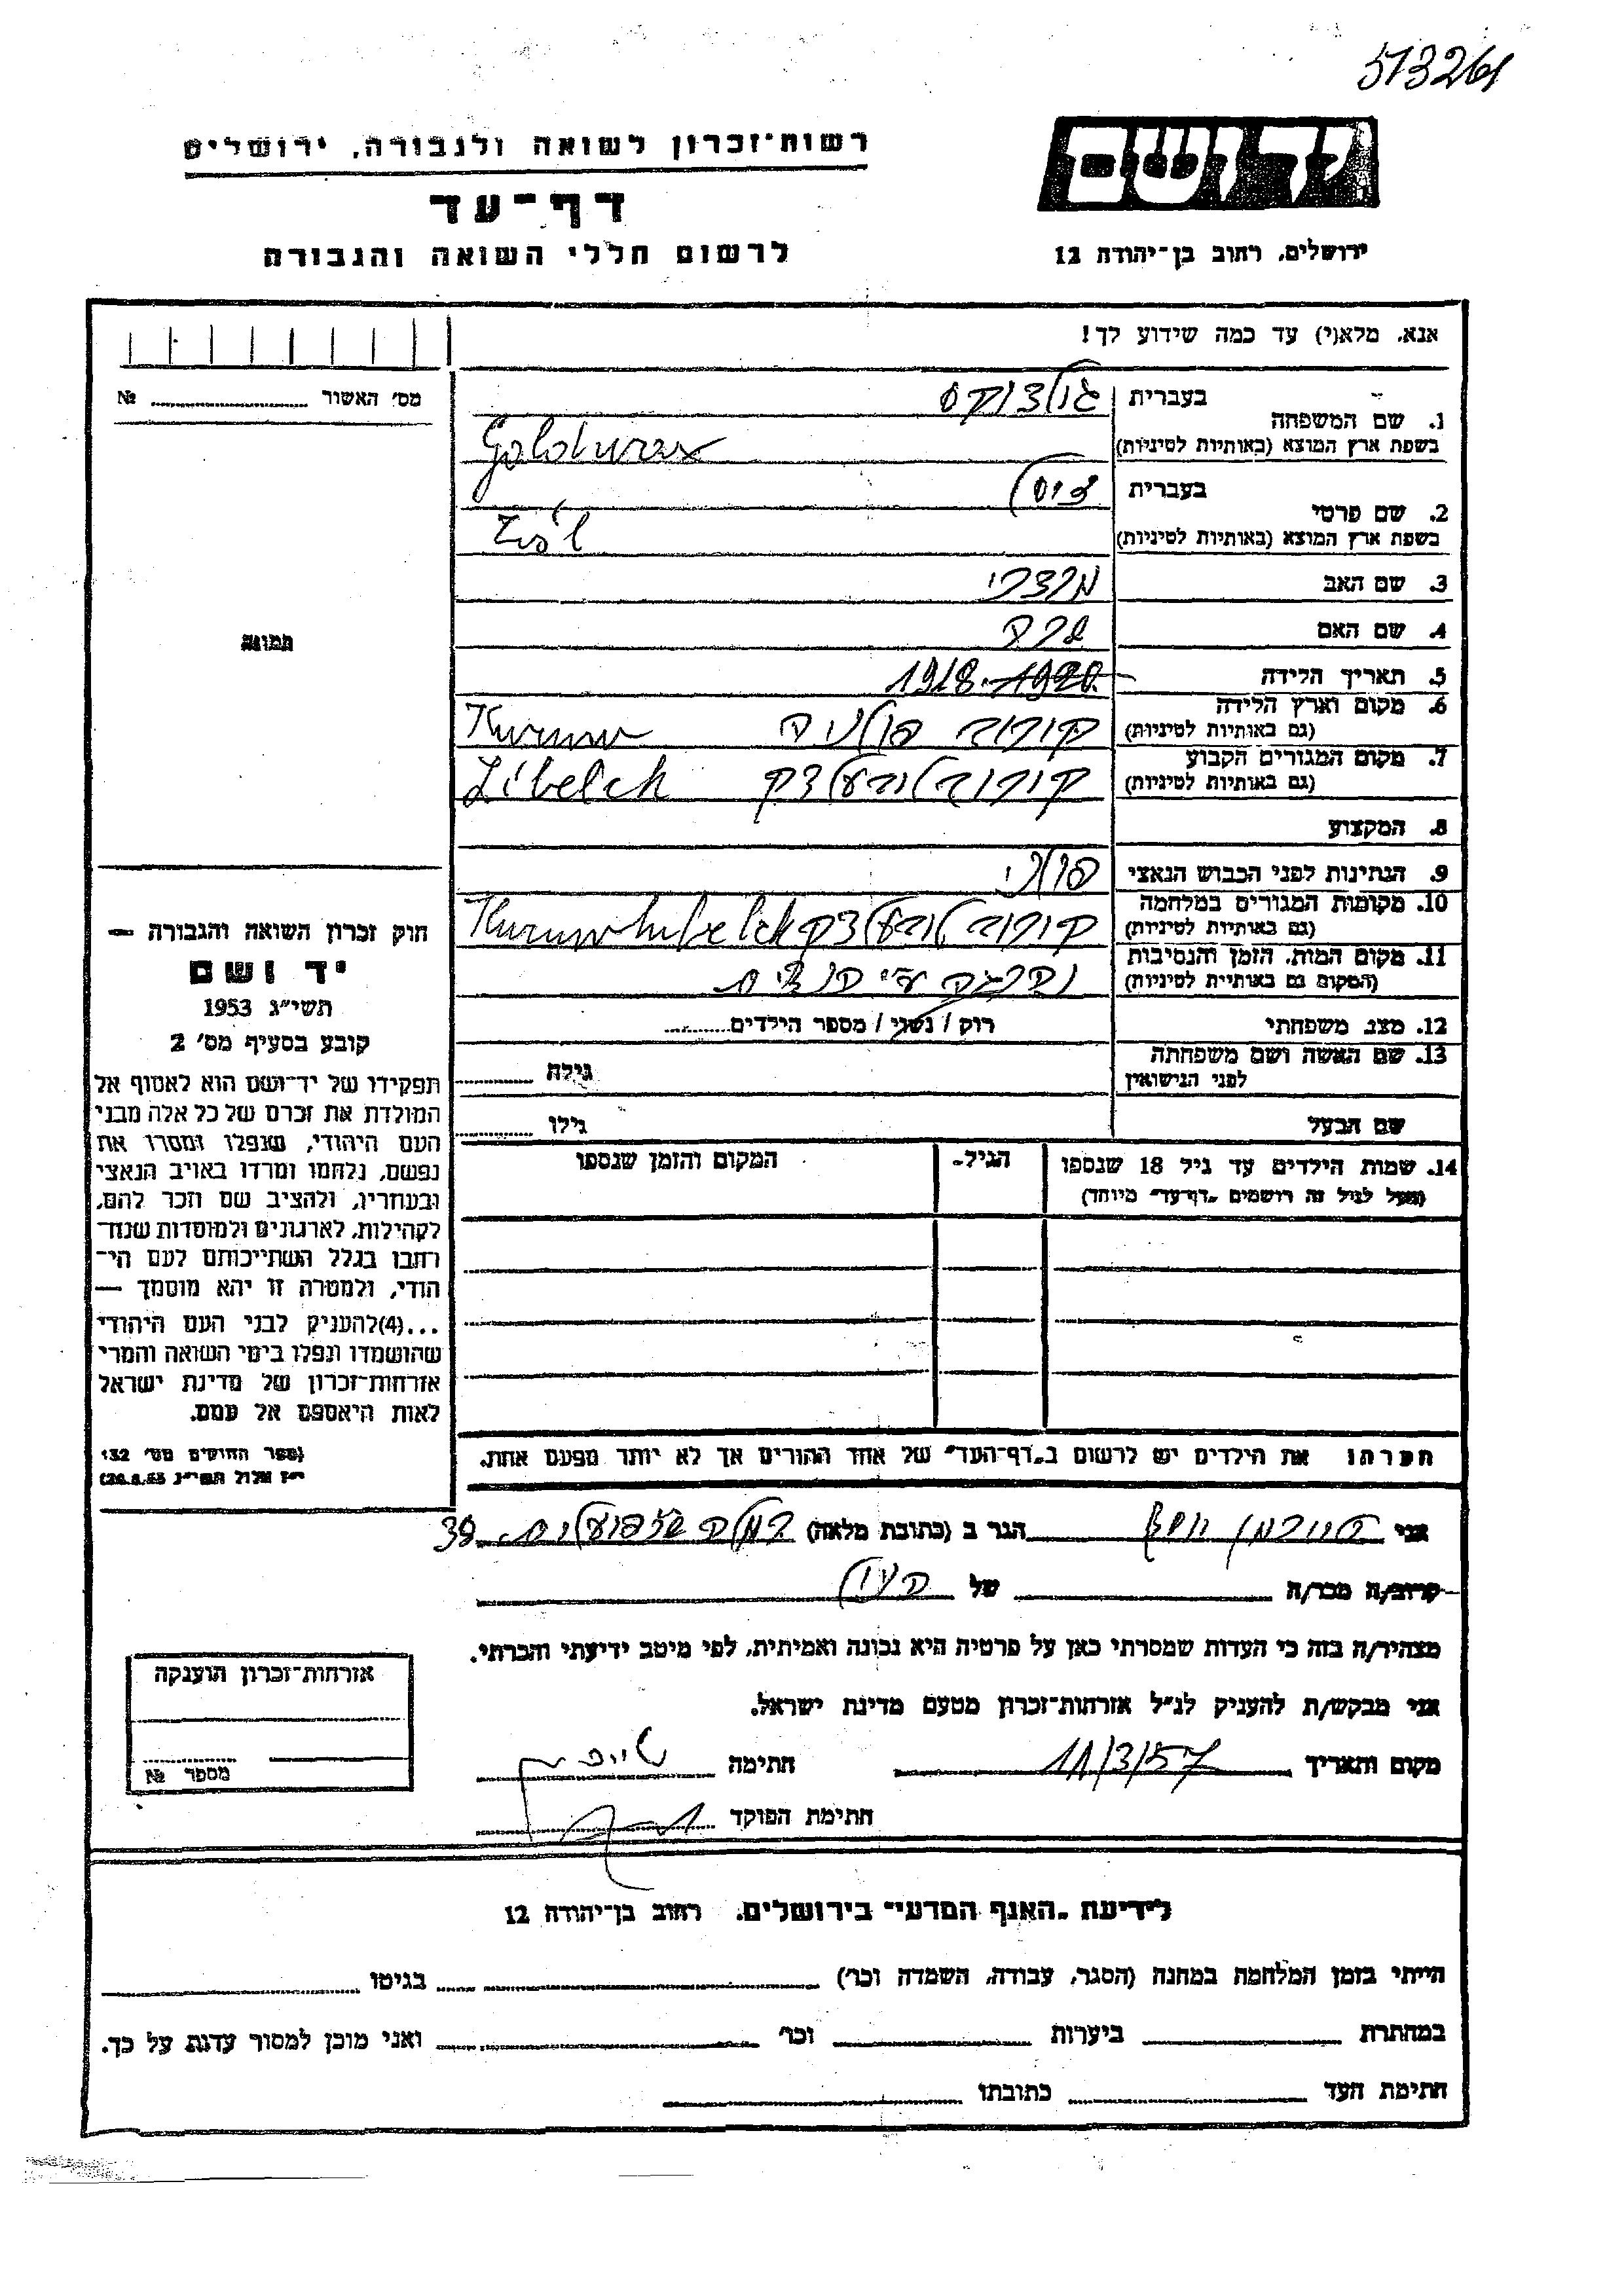 573261
רשות־זכרון לשואה ולגבורה, ירושלים
יד ושם
דף־עד
לרשום חללי השואה והגבורה
ירושלים, רחוב בן־יהודה 12
אנא, מלא(י) עד כמה שידוע לך!
מס' האשור №
1. שם המשפחה
בעברית
בשפת ארץ המוצא (באותיות לטיניות)
2. שם פרטי
בעברית
בשפת ארץ המוצא (באותיות לטיניות)
3. שם האב מרדכי
4. שם האם
5. תאריך הלידה 1918. 1920
6. מקום וארץ הלידה
(גם באותיות לטיניות)
קורוב פולניה
7. מקום המגורים הקבוע
(גם באותיות לטיניות)
8. המקצוע
9. הנתינות לפני הכבוש הנאצי פולני
10. מקומות המגורים במלחמה
(גם באותיות לטיניות)
11. מקום המות, הזמן והנסיבות
(המקום גם באותיות לטיניות)
12. מצב משפחתי
רוק / נשוי / מספר הילדים
13. שם האשה ושם משפחתה
לפני הנישואין
גילה
שם הבעל
גילו
14. שמות הילדים עד גיל 18 שנספו
(מעל לגיל זה רושמים „דף־עד" מיוחד)
הגיל
המקום והזמן שנספו
הערתו את הילדים יש לרשום ב„דף־העד" של אחד ההורים אך לא יותר מפעם אחת.
תמונה
חוק זכרון השואה והגבורה —
יד ושם
תשי"ג 1953
קובע בסעיף מס' 2
תפקידו של יד־ושם הוא לאסוף אל
המולדת את זכרם של כל אלה מבני
העם היהודי, שנפלו ומסרו את
נפשם, נלחמו ומרדו באויב הנאצי
ובעוזריו, ולהציב שם וזכר להם,
לקהילות, לארגונים ולמוסדות שנח־
רבו בגלל השתייכותם לעם הי־
הודי, ולמטרה זו יהא מוסמך —
...(4)להעניק לבני העם היהודי
שהושמדו ונפלו בימי השואה והמרי
אזרחות־זכרון של מדינת ישראל
לאות היאספם אל עמם.
(ספר החוקים מס' 132
י"ז אלול תשי"ג 28.8.53)
אני
הגר ב (כתובת מלאה) 39
קרוב/ה מכר/ה של
מצהיר/ה בזה כי העדות שמסרתי כאן על פרטיה היא נכונה ואמיתית, לפי מיטב ידיעתי והכרתי.
אני מבקש/ת להעניק לנ"ל אזרחות־זכרון מטעם מדינת ישראל.
מקום ותאריך 11/3/57 חתימה
חתימת הפוקד
אזרחות־זכרון הוענקה
מספר №
לידיעת „האגף המדעי" בירושלים. רחוב בן־יהודה 12
הייתי בזמן המלחמה במחנה (הסגר, עבודה, השמדה וכו') בגיטו
במחתרת ביערות וכו' ואני מוכן למסור עדות על כך.
חתימת העד כתובתו